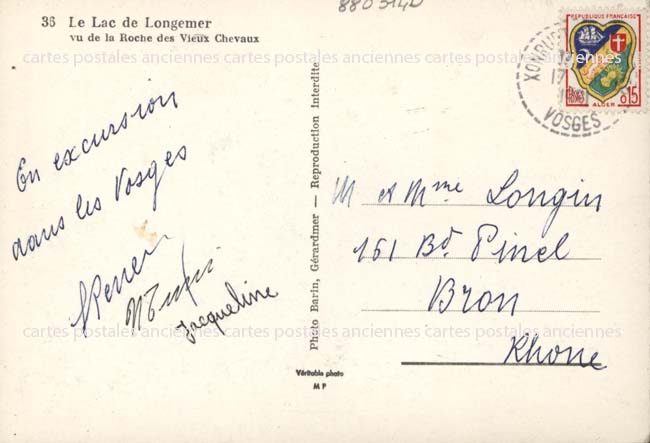 880314D
36 Le Lac de Longemer
vu de la Roche des Vieux Chevaux
En excursion
dans les Vosges
Jacqueline
Photo Barin, Gérardmer — Reproduction Interdite
Véritable photo
M P
REPUBLIQUE FRANÇAISE
POSTES
0,15
ALGER
VOSGES
M et Mme Longin
161 Bd Pinel
Bron
Rhone
cartes postales anciennes cartes postales anciennes cartes postales anciennes
cartes postales anciennes cartes postales anciennes cartes postales anciennes